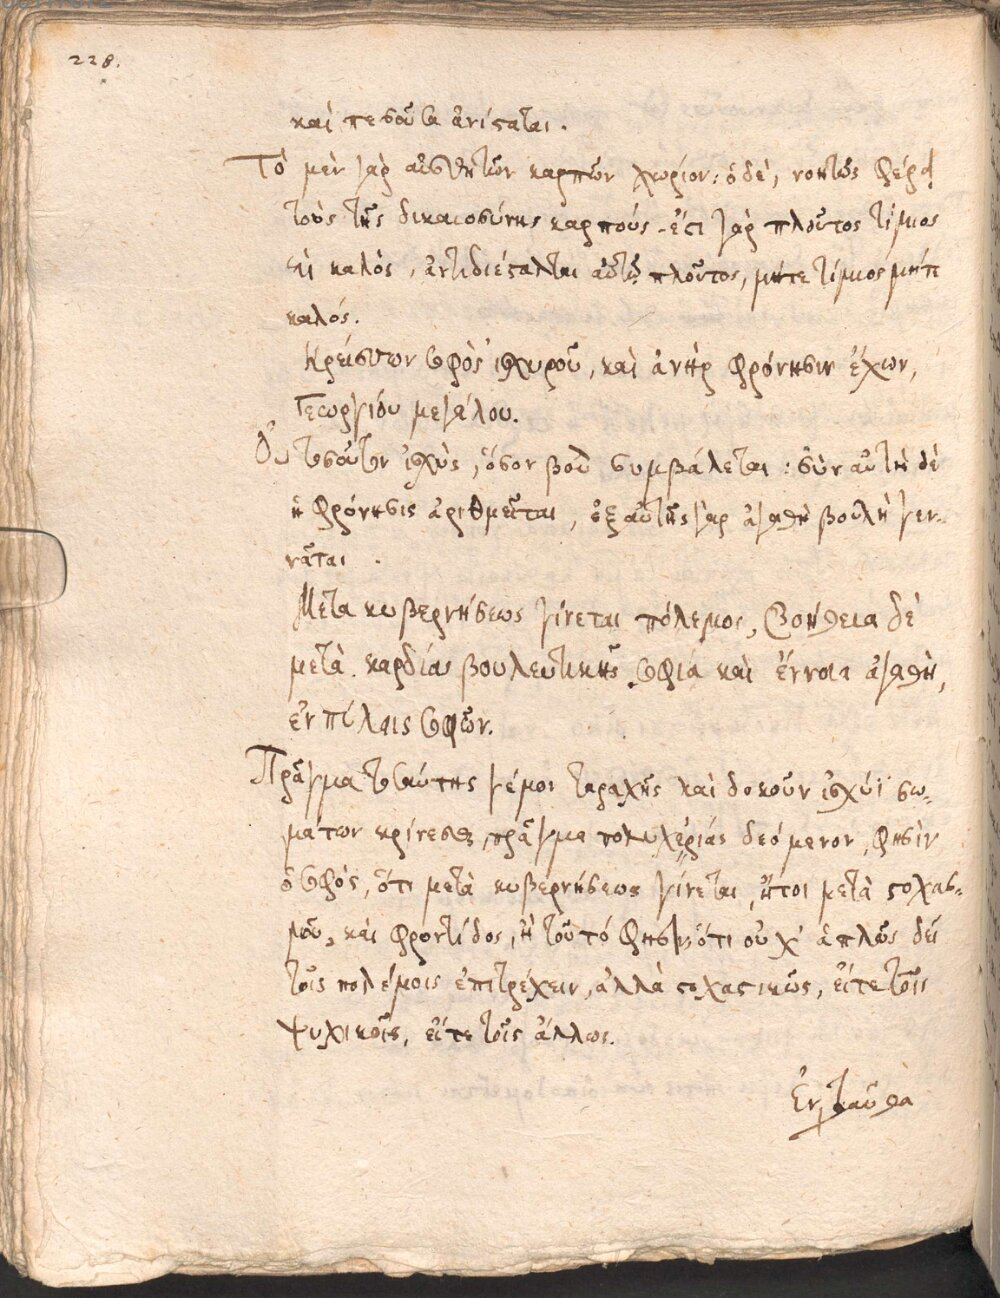 228.
καὶ πεσοῦσα ἀνίσταται.
Τὸ μὲν γὰρ αἰσθητῶν καρπῶν χωρίον· ὁ δὲ, νοητῶς φέρει
τοὺς τῆς δικαιοσύνης καρπούς. ἔστι γὰρ πλοῦτος τίμιος
καὶ καλός, ἀντιδιέσταλται αὐτῷ πλοῦτος, μήτε τίμιος μήτε
καλός.
Κρείσσων σοφὸς ἰσχυροῦ, καὶ ἀνὴρ φρόνησιν ἔχων,
Γεωργίου μεγάλου.
Οὐ τοσοῦτον ἰσχὺς, ὅσον βουλὴ συμβάλεται: σὺν αὐτῇ δὲ
ἡ φρόνησις ἀριθμεῖται, ἐξ αὐτῆς γὰρ ἀγαθὴ βουλὴ γεν-
νᾶται.
Μετὰ κυβερνήσεως γίνεται πόλεμος, βοήθεια δὲ
μετὰ καρδίας βουλευτικῆς. σοφία καὶ ἔννοια ἀγαθὴ,
ἐν πύλαις σοφῶν.
Πρᾶγμα τοσαύτης γέμον ταραχῆς καὶ δοκοῦν ἰσχύϊ σω-
μάτων κρίνεσθαι, πρᾶγμα πολυχειρίας δεόμενον, φησὶν
ὁ σοφός, ὅτι μετὰ κυβερνήσεως γίνεται, ἤτοι μετὰ στοχασ-
μοῦ, καὶ φροντίδος, ἢ τοῦτό φησιν ὅτι οὐχ' ἁπλῶς δεῖ
τοῖς πολέμοις ἐπιτρέχειν, ἀλλὰ στοχαστικῶς, εἴτε τοῖς
ψυχικοῖς, εἴτε τοῖς ἄλλως.
Ἐνταῦθα